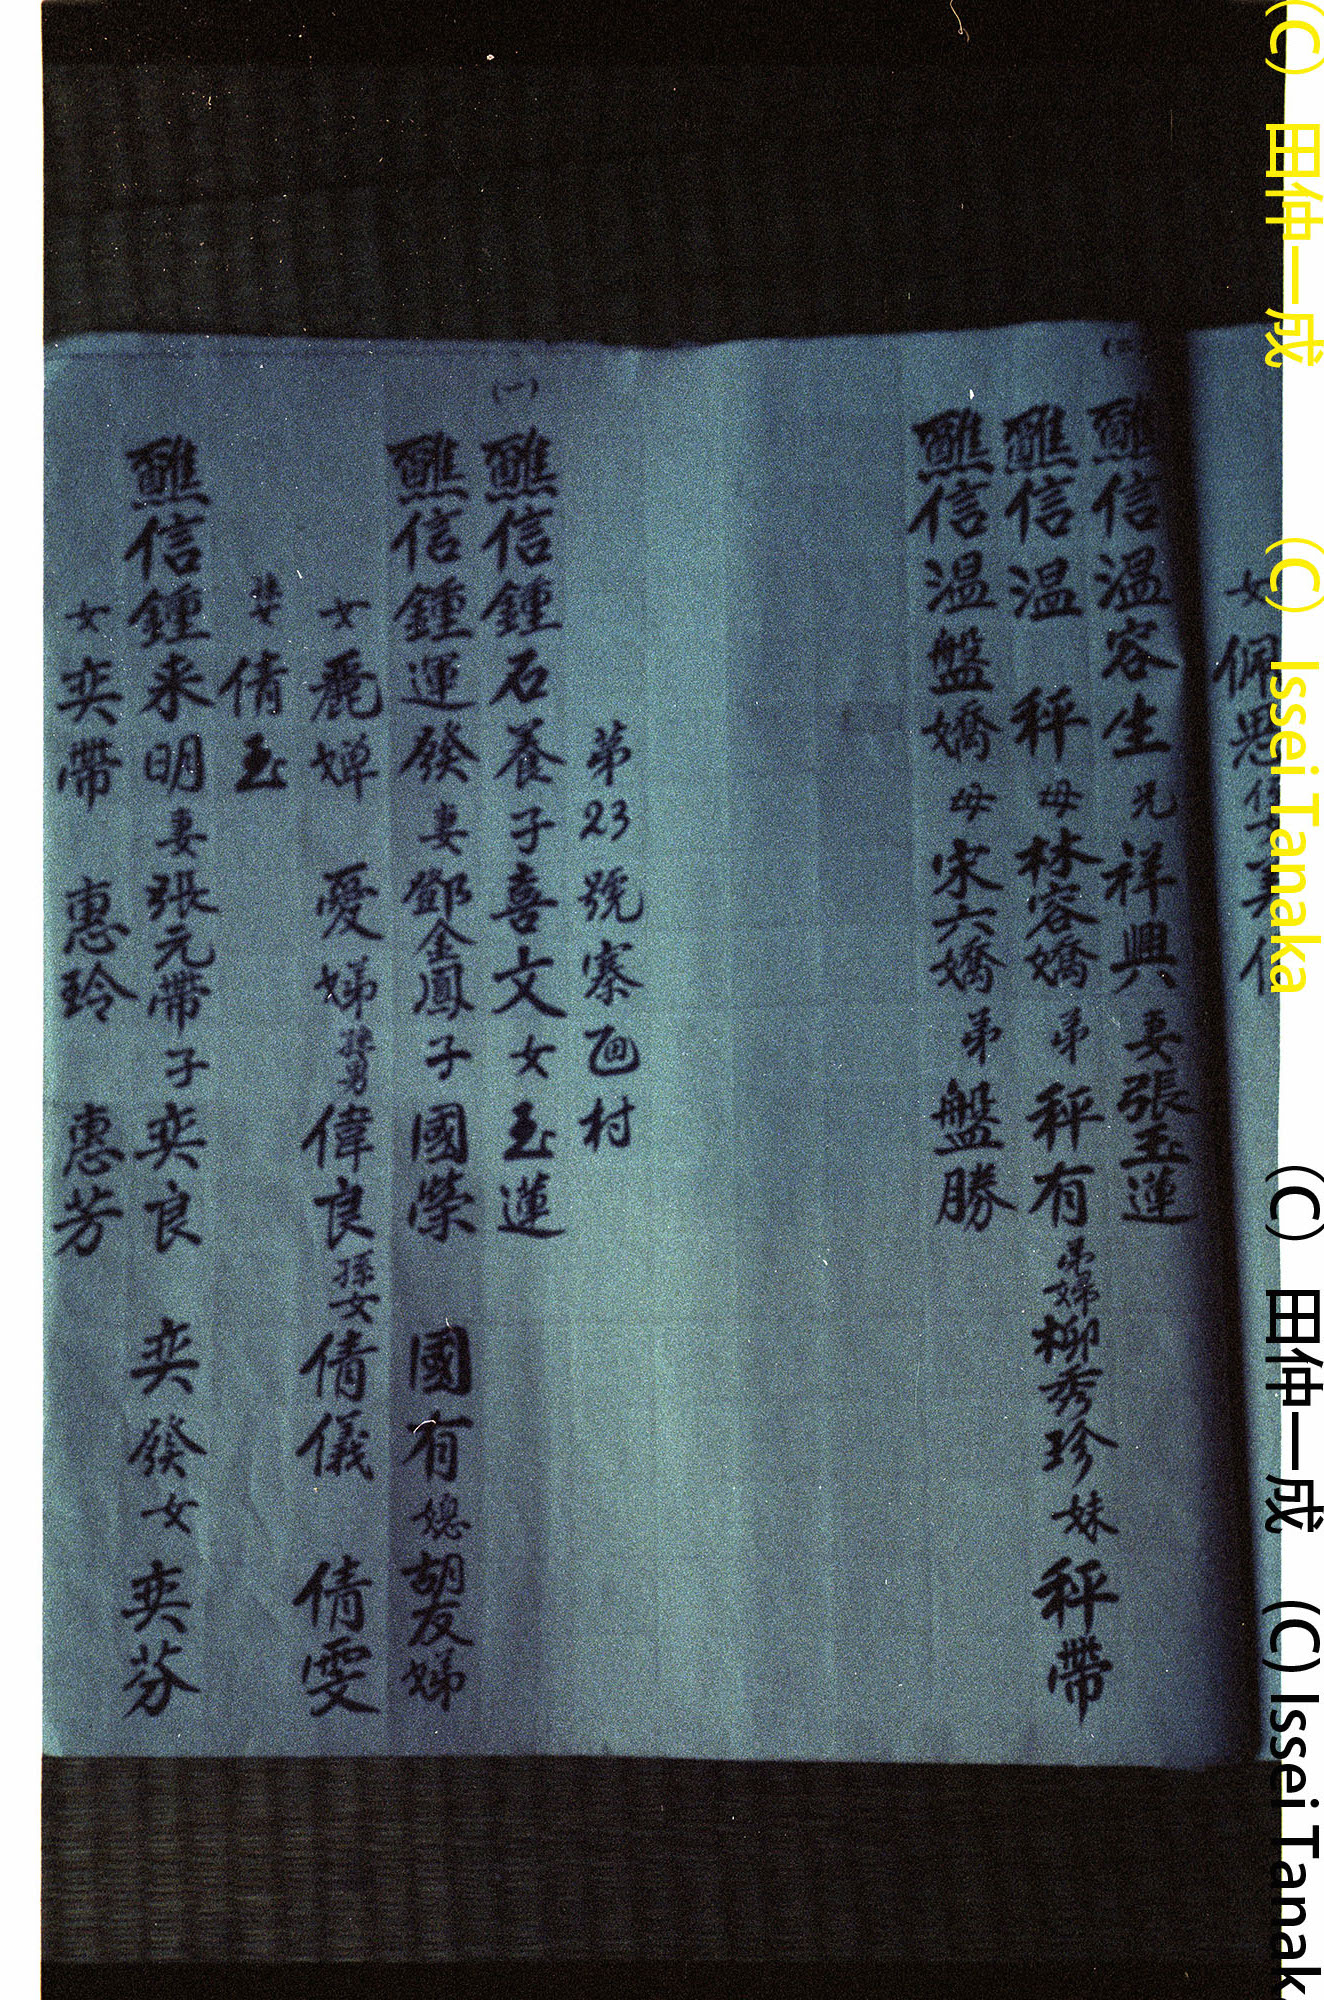 女佩恩
醮信溫容生兄祥興妻張玉蓮
醮信溫 秤母林容嬌弟秤有弟婦柳秀珍妹秤帶
醮信溫盤嬌母宋六嬌弟盤勝
第23號寨乪村
(一)
醮信鍾石養子喜文女玉蓮
醮信鍾運發妻鄧金鳳子國榮 國有媳胡友娣
女麗嬋 憂娣 偉良孫女倩儀 倩雯
倩玉
醮信鍾來明妻張元帶子奕良 奕發女奕芬
女奕帶 惠玲 惠芳
(C) 田仲一成 (C) Issei Tanaka
(C) 田仲一成 (C) Issei Tanak